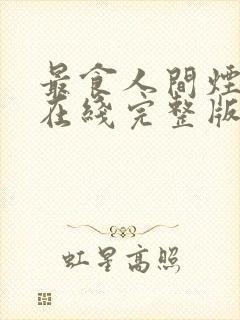 最食人間煙
在綫完整版
虹星高照